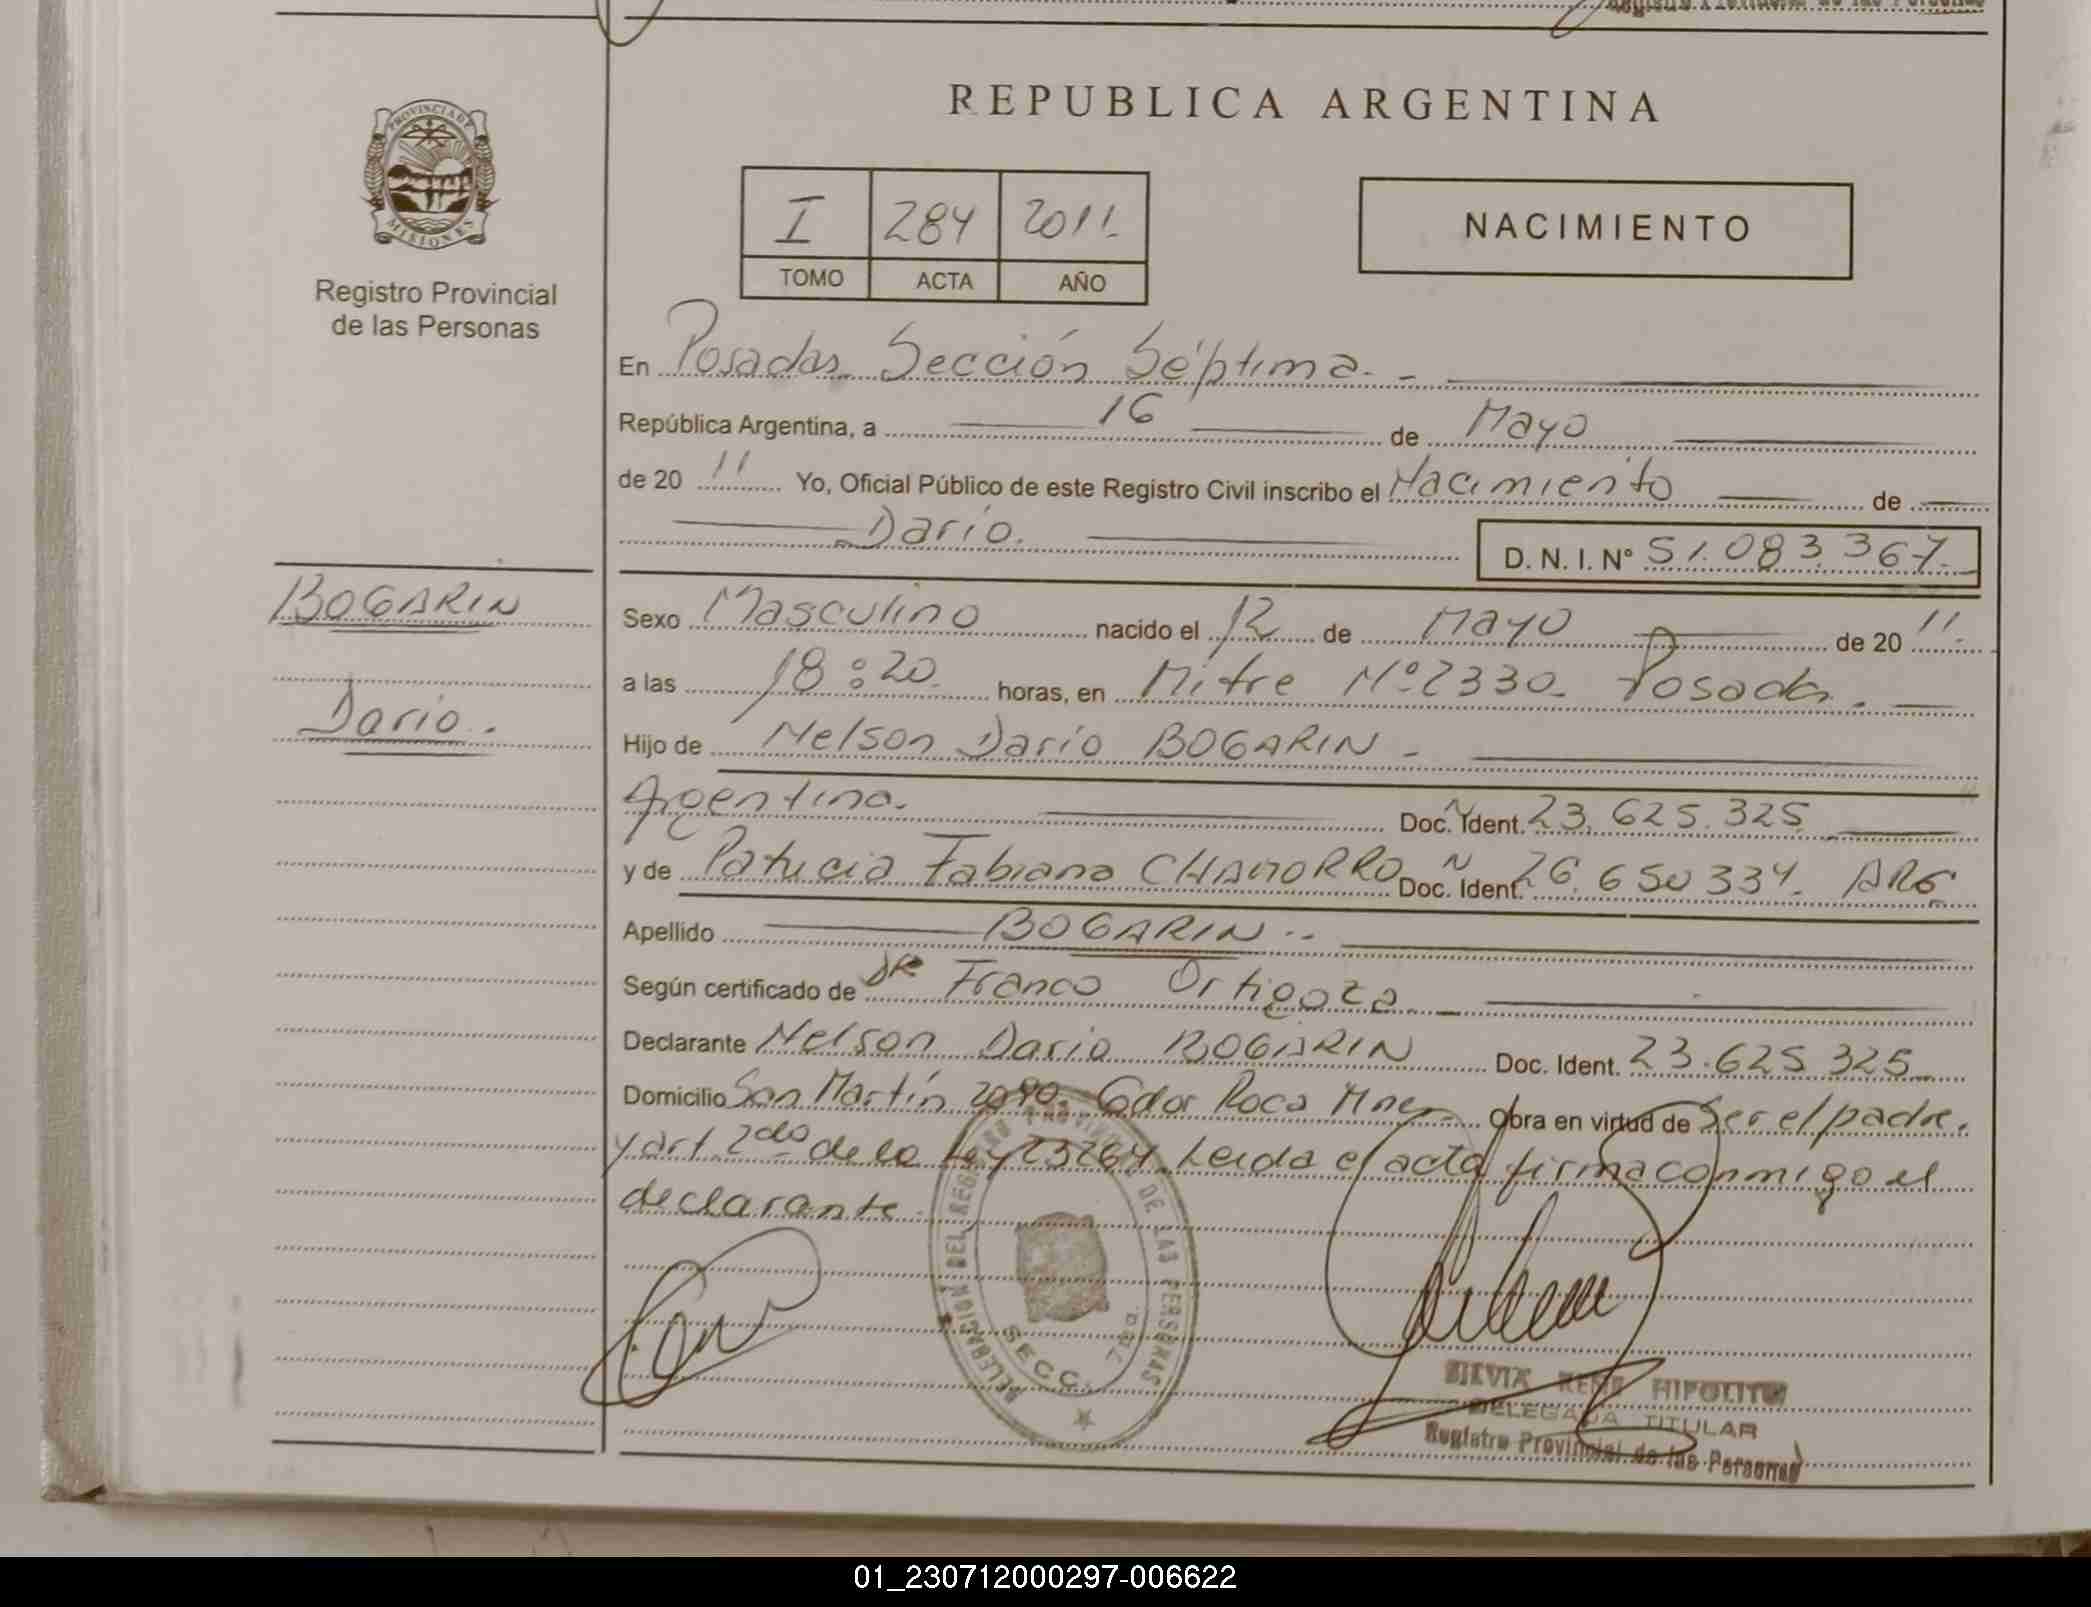 Registro Provincial de las Personas
REPUBLICA ARGENTINA
PROVINCIA DE
MISIONES
Registro Provincial
de las Personas
I 284 2011.
TOMO ACTA AÑO
NACIMIENTO
En Posadas Sección Séptima. -
República Argentina, a 16 de Mayo
de 20 11 Yo, Oficial Público de este Registro Civil inscribo el Nacimiento de
Darío.
D. N. I. Nº 51.083.367.
BOGARIN
Darío.
Sexo Masculino nacido el 12 de Mayo de 20 11.
a las 18:20. horas, en Mitre Nº 2330. Posadas.
Hijo de Nelson Darío BOGARIN -
Argentina. Doc. Ident. Nº 23.625.325.
y de Patricia Fabiana CHAMORRO Doc. Ident. Nº 26.650334. ARG.
Apellido BOGARIN..
Según certificado de Dr Franco Ortigoza
Declarante Nelson Dario BOGARIN Doc. Ident. 23.625325
Domicilio San Martín 2090. Gdor Roca Mnes Obra en virtud de Ser el padre.
y art. 2do de la Ley 23264. Leída el acta firma conmigo el
declarante.
DELEGACION DEL REGISTRO PROVINCIAL DE LAS PERSONAS
SECC. 7ma.
SILVIA RENE HIPOLITO
DELEGADA TITULAR
Registro Provincial de las Personas
01_230712000297-006622